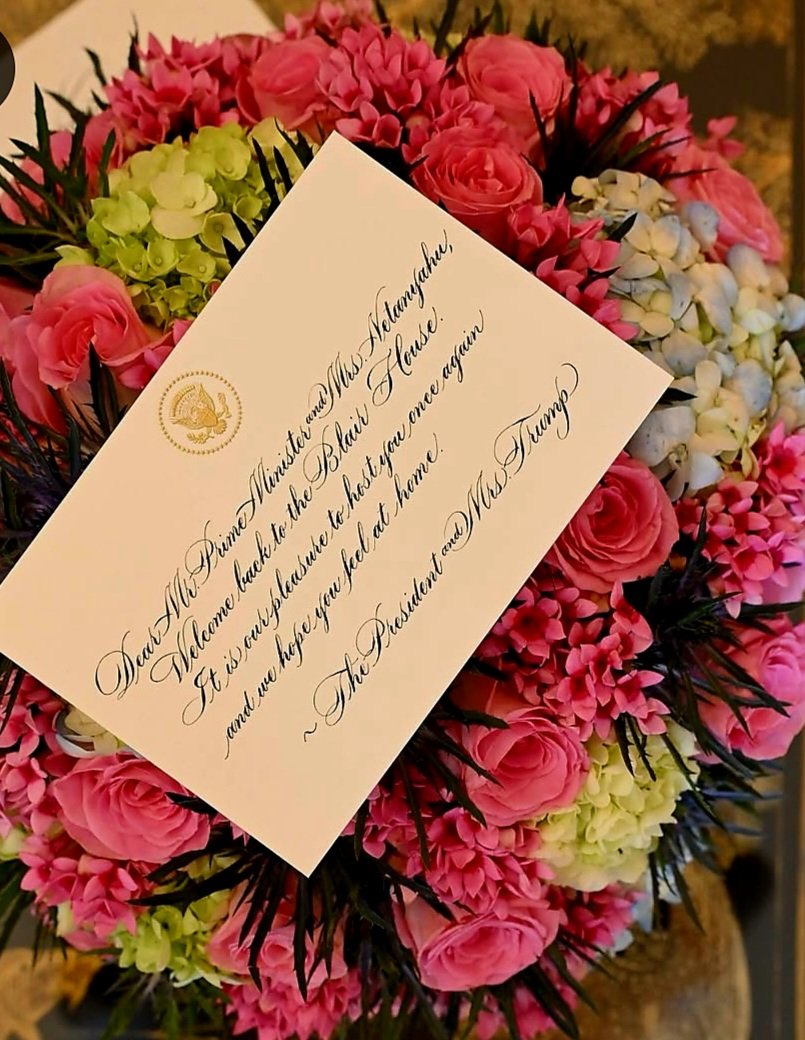 Dear Mr. Prime Minister and Mrs. Netanyahu,
Welcome back to the Blair House.
It is our pleasure to host you once again
and we hope you feel at home.
~ The President and Mrs. Trump